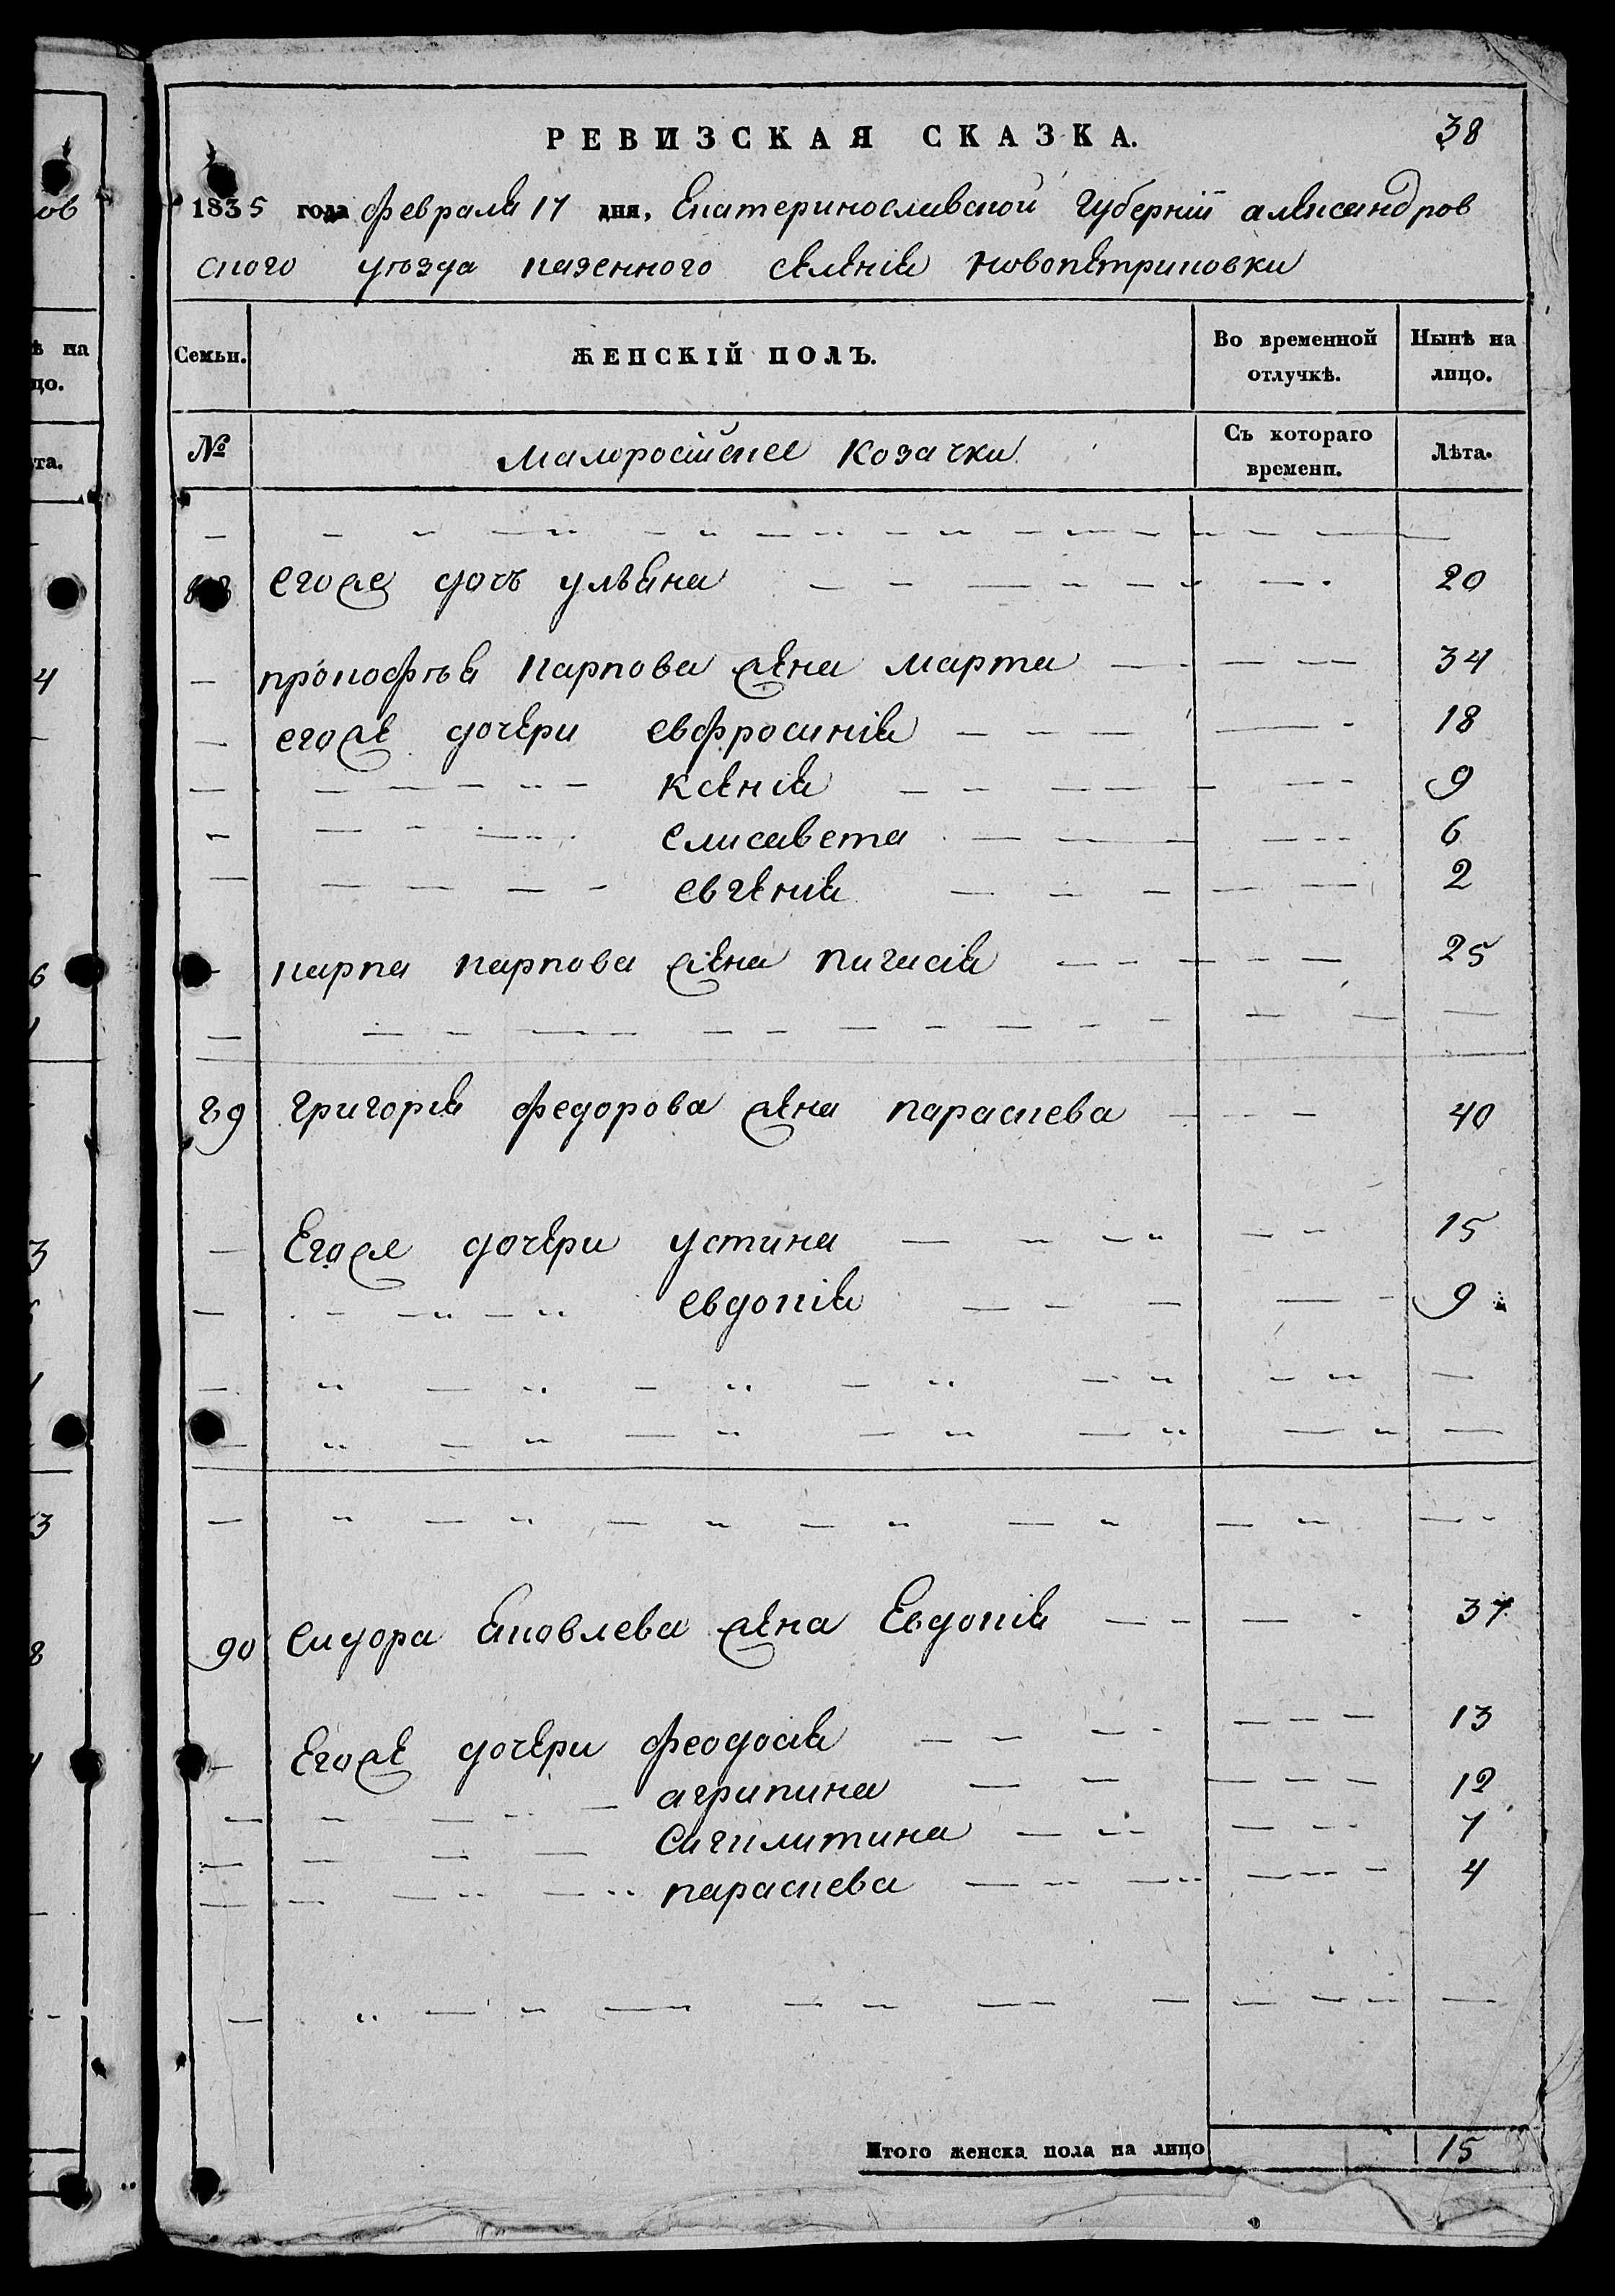 РЕВИЗСКАЯ СКАЗКА. 38
1835 года февраля 17 дня, Екатеринославской губерніи александров
ского уѣзда казенного селенія новопетриковки
Семьи. ЖЕНСКІЙ ПОЛЪ. Во временной отлучкѣ. Нынѣ на лицо.
№ малоросійские козачки Съ котораго времени. Лѣта.
88 егоже дочь ульяна 20
прокофъя карпова жена марта 34
егоже дочери евфросинія 18
ксенія 9
елисавета 6
евгенія 2
карпа карпова жена 25
89 григорія федорова жена параскева 40
Егоже дочери устина 15
евдокія 9
90 сидора яковлева жена Евдокія 37
Егоже дочери феодосія 13
агрипина 12
7
параскева 4
Итого женска пола на лицо 15
ов
ѣ на
цо.
та.
4
6
3
3
8